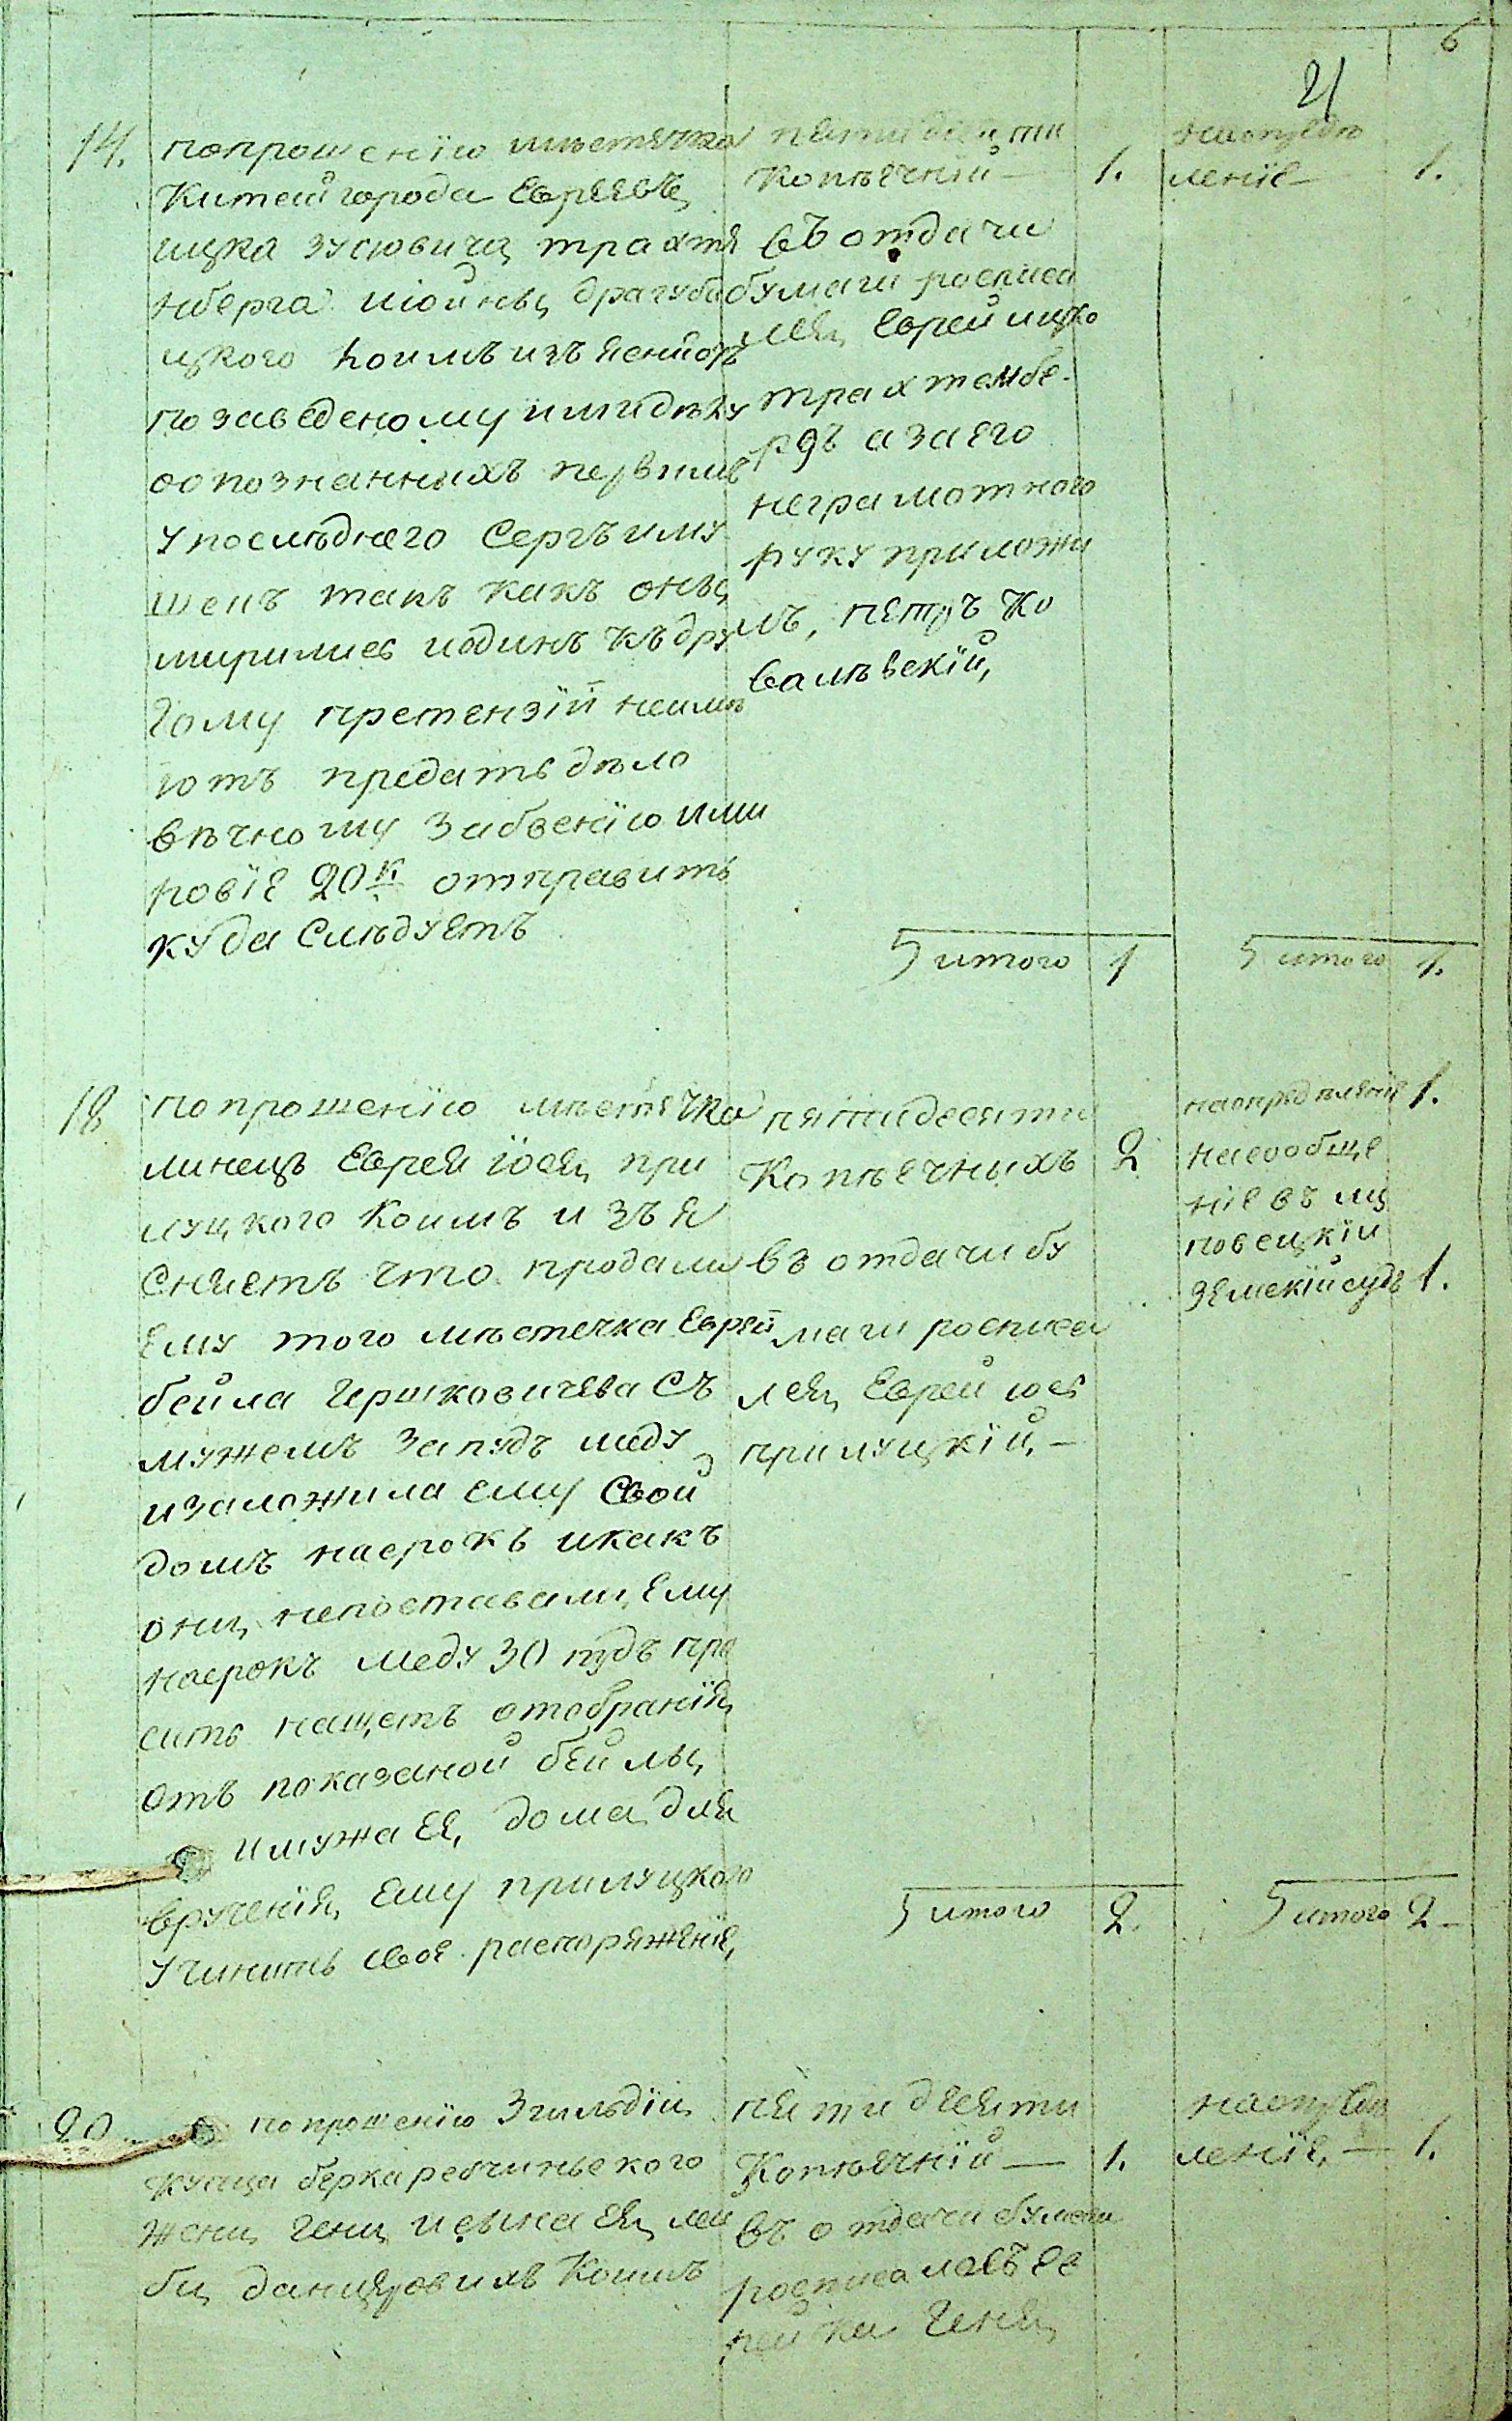 6
21
14.
попрошенїю мѣстечка
Китай города Евреевъ
ицка зусювича трахте
нберга июйны драгуба
цкого коимъ изъясниютъ
позаведеному ими дѣлу
оопознанныхъ первимъ
упослѣднего Сергъ иму
шенъ такъ какъ оны
мирились иодинъ къдру
гому претензїй неимѣ
ютъ предать дѣло
вѣчному забвенїю ими
ровїе 20 к отправить
куда Слѣдуетъ
пятидесяти
Копѣечнїй — 1.
въ отдачи
бумаги росписа
лся Еврей ицко
трахтембе
ргъ азаего
неграмотного
руку приложи
лъ, петръ Ко
вальвскїй,
наопредѣ
ленїе — 1.
5 итого 1
5 итого 1.
18
попрошенїю мѣстечка
линецъ Еврея їося при
луцкого Коимъ изъя
сняетъ что продали
Ему того мѣстечка Еврей
бейла Гершковичева Съ
мужемъ запудъ меду
изаложила ему Свой
домъ насрокъ икакъ
они непоставили Ему
насрокъ меду 30 пудъ про
ситъ нащетъ отобранїя
отъ показаной бейлы
имужа Ея, дома для
врученїя, Ему прилуцкого
учинить свое распоряженїе,
пятидесяти
Копѣечныхъ 2
въ отдачи бу
маги росписа
лся Еврей юсь
прилуцкїй, —
наопредѣленїе 1.
насообще
нїе въ ли
повецкїй
земскїй судъ 1.
5 итого 2.
5 итого 2
20
попрошенїю 3 гильдїи
купца берка
жены Гени исына Ея лей
бы Коимъ
пятидесяти
Копѣечнїй — 1.
въ отдачи бумаги
росписалась Ев
рейка Геня
наопредѣ
ленїе, — 1.